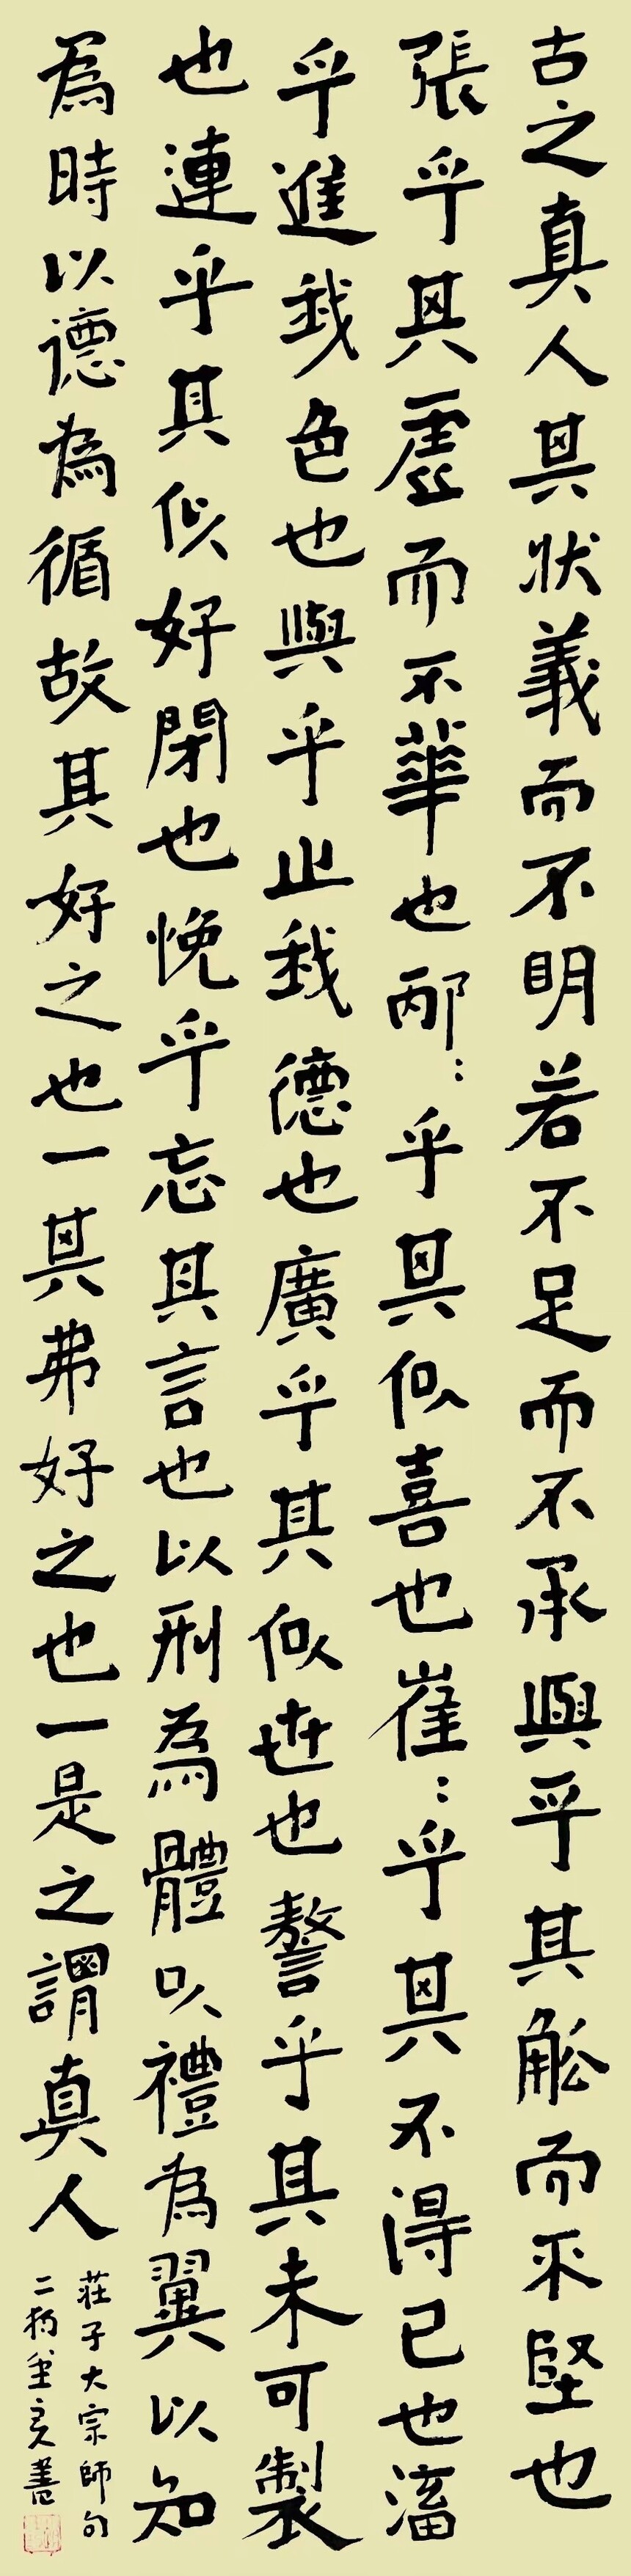 古之真人其状義而不眀若不足而不承與乎其觚而不堅也
張乎其虛而不華也邴：乎其似喜也崔：乎其不得已也滀
乎進我色也與乎止我德也廣乎其似世也謷乎其未可製
也連乎其似好閉也悗乎忘其言也以刑為體以禮為翼以知
為時以德為循故其好之也一其弗好之也一是之謂真人
莊子大宗師句
二 書